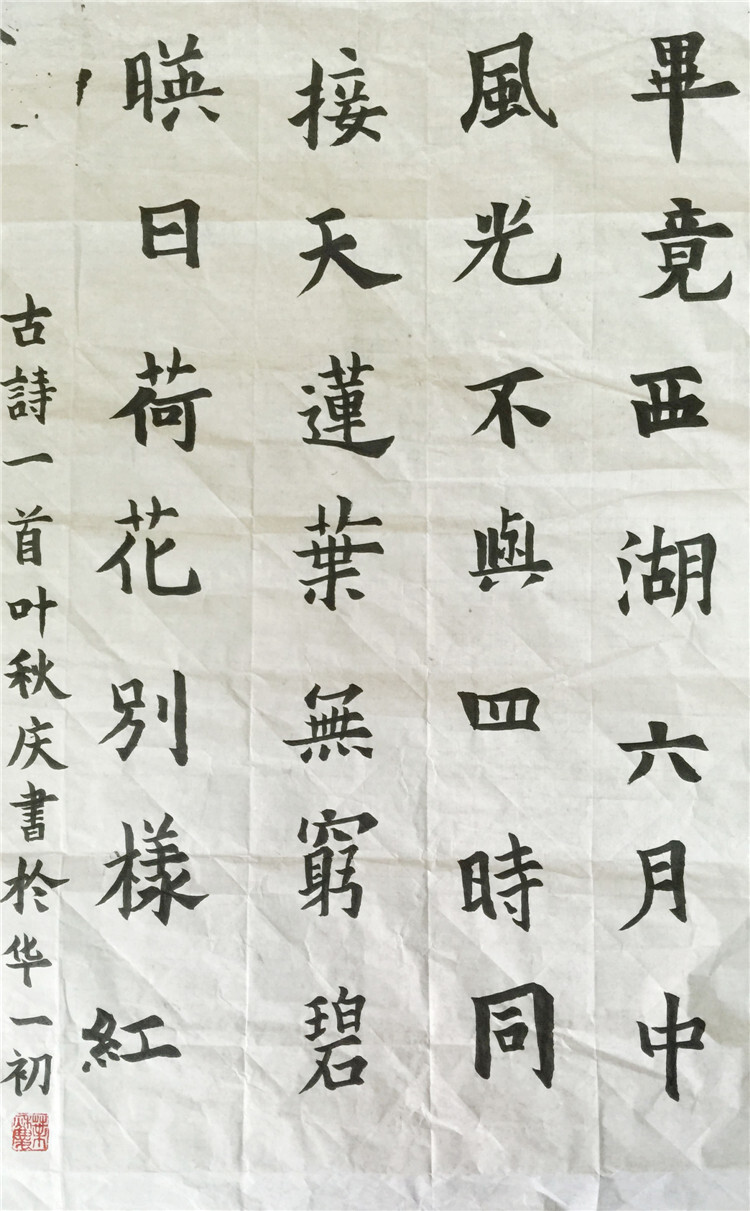 畢竟西湖六月中
風光不與四時同
接天蓮葉無窮碧
暎日荷花別樣紅
古詩一首叶秋庆書於华一初